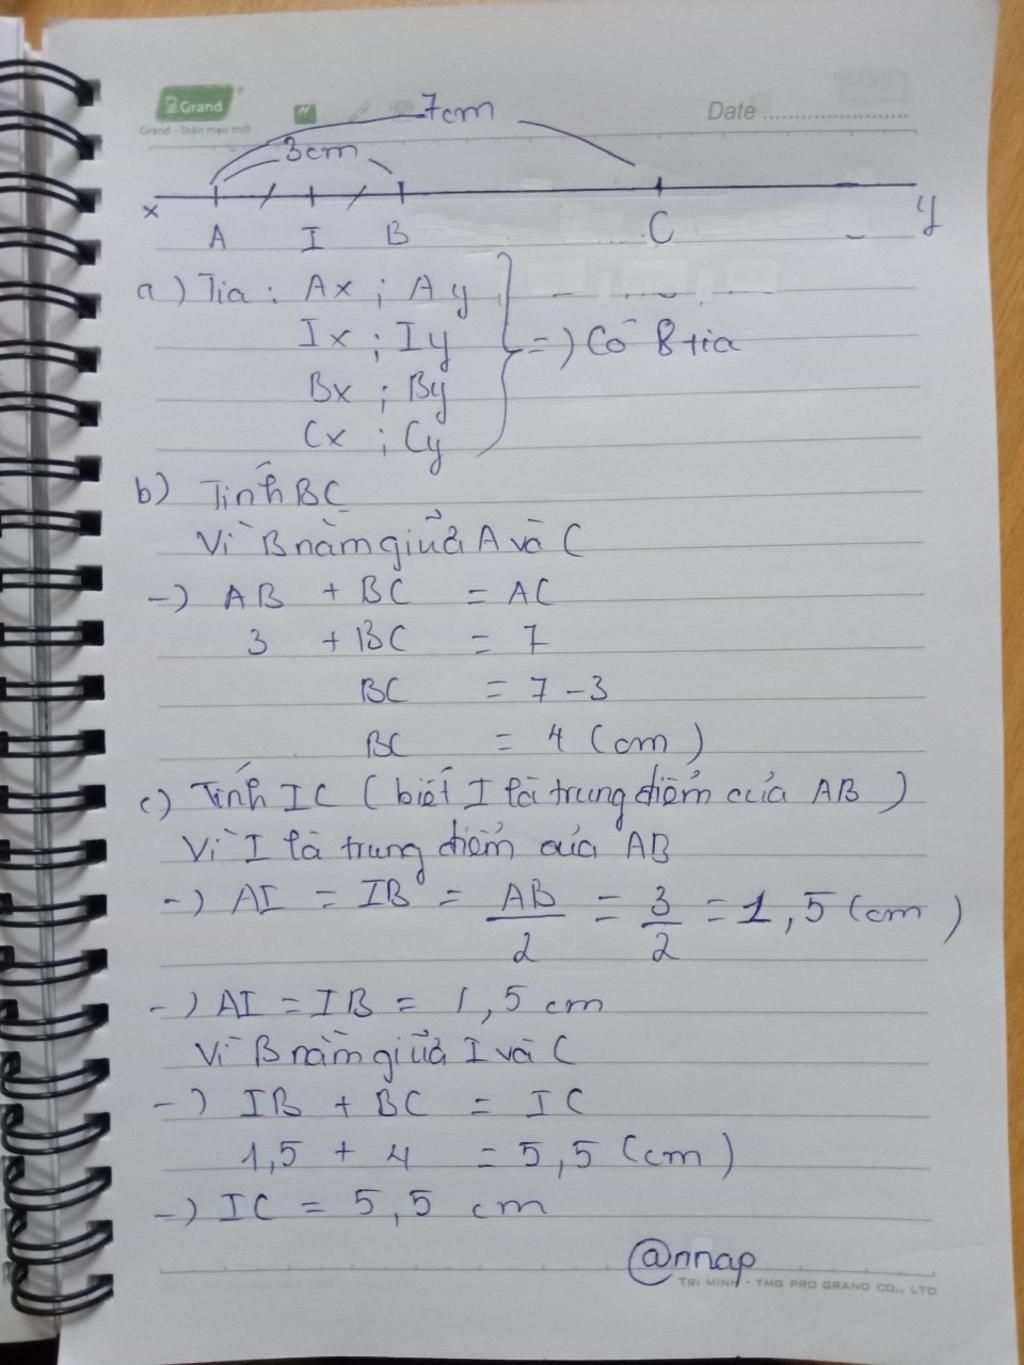 Grand
Grand - Diện mạo mới
Date
7cm
3cm
x A I B C y
a) Tia : Ax ; Ay
Ix ; Iy => Có 8 tia
Bx ; By
Cx ; Cy
b) Tính BC
Vì B nằm giữa A và C
-) AB + BC = AC
3 + BC = 7
BC = 7 - 3
BC = 4 (cm)
c) Tính IC (biết I là trung điểm của AB)
Vì I là trung điểm của AB
-) AI = IB = AB/2 = 3/2 = 1,5 (cm)
-) AI = IB = 1,5 cm
Vì B nằm giữa I và C
-) IB + BC = IC
1,5 + 4 = 5,5 (cm)
-) IC = 5,5 cm
@nnap
TRI MINH - TMG PRO GRAND CO., LTD